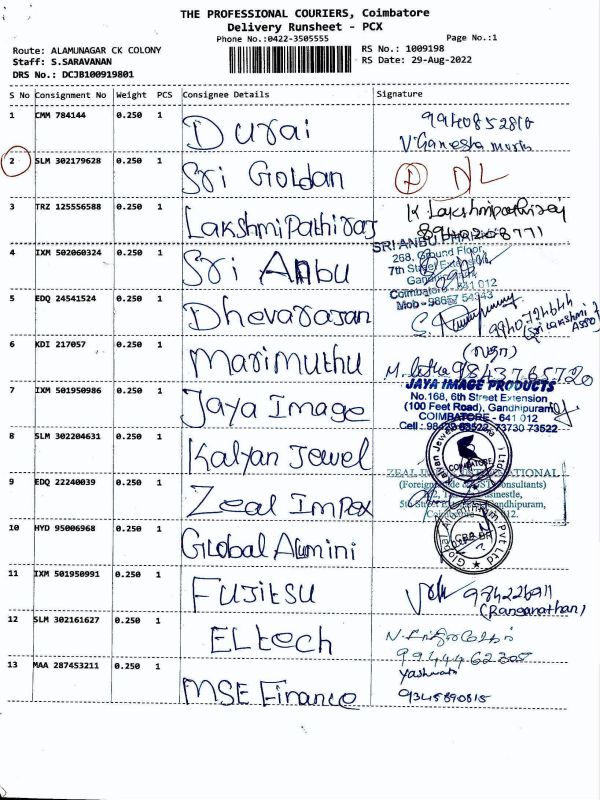 THE PROFESSIONAL COURIERS, Coimbatore
Delivery Runsheet - PCX
Phone No.:0422-3505555
Page No.:1
Route: ALAMUNAGAR CK COLONY
RS No.: 1009198
Staff: S.SARAVANAN
RS Date: 29-Aug-2022
DRS No.: DCJB100919801
S No Consignment No Weight PCS Consignee Details Signature
1 CMM 784144 0.250 1 Durai 9940852810
V.Ganesha
2 SLM 302179628 0.250 1 Sri Goldan NL
3 TRZ 125556588 0.250 1 Lakshmi Pathiraj K Lakshmipathiraj
8940208771
SRI ANBU
268, Ground Floor,
7th Street Extension
Coimbatore - 641 012
Mob - 98657 54343
4 IXM 502060324 0.250 1 Sri Anbu
5 EDQ 24541524 0.250 1 Dhevarajan
(Sri Lakshmi
6 KDI 217057 0.250 1 Marimuthu 9843765720
JAYA IMAGE PRODUCTS
No.168, 6th Street Extension
(100 Feet Road), Gandhipuram
COIMBATORE - 641 012
Cell : 73730 73522
7 IXM 501950986 0.250 1 Jaya Image
8 SLM 302204631 0.250 1 Kalyan Jewel
COIMBATORE
9 EDQ 22240039 0.250 1 Zeal Impex
ZEAL INTERNATIONAL
Consultants)
10 HYD 95006968 0.250 1 Global Alumini
Global Aluminium Pvt Ltd
11 IXM 501950991 0.250 1 Fujitsu
(Ranganathan)
12 SLM 302161627 0.250 1 ELtech
9944462308
13 MAA 287453211 0.250 1 MSE Finance Yashwanth
9345890815